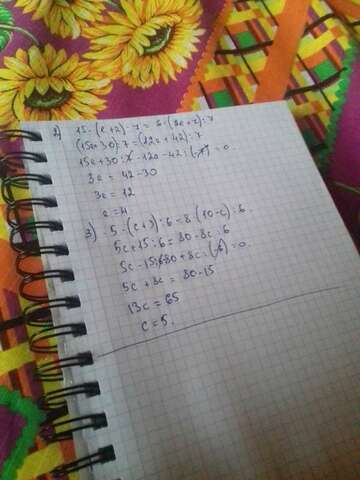 2) 15·(c+2):7 = 6·(2c+7):7
(15c+30):7=(12c+42):7
15c+30:7-12c-42:(-7)=0
3c = 42-30
3c = 12
c=4
3) 5·(c+3):6=8·(10-c):6
5c+15:6=80-8c:6
5c-15:6 80+8c:(6)=0
5c+8c = 80-15
13c = 65
c=5.